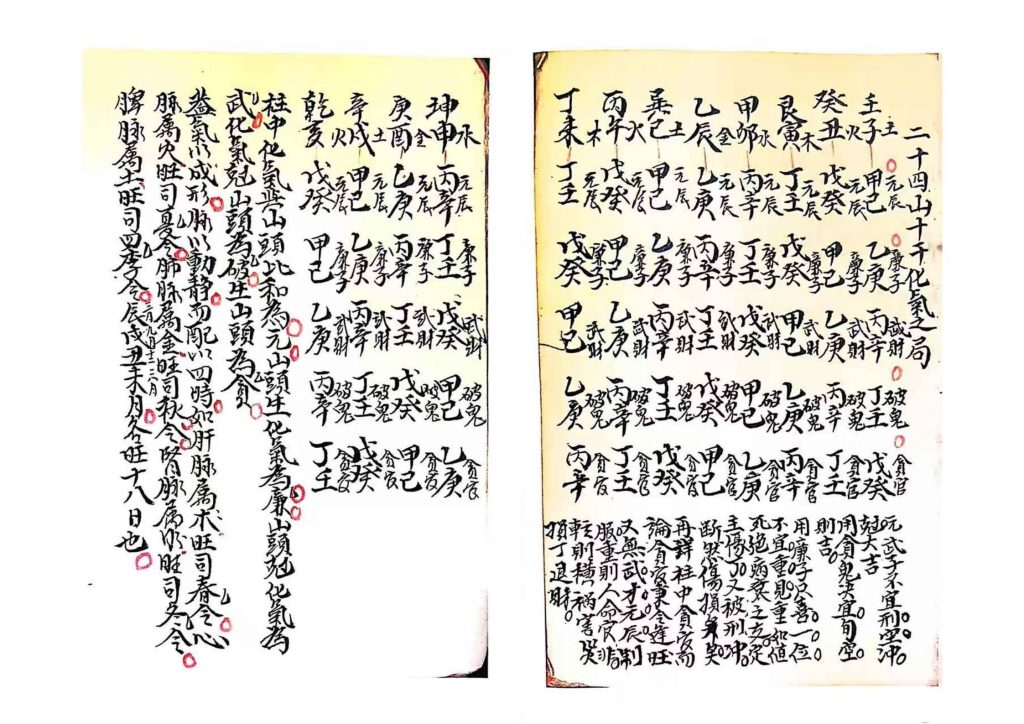 二十四山十干化氣之局
壬子 土 元辰 甲己 廉子 乙庚 武財 丙辛 破鬼 丁壬 貪官 戊癸
癸丑 火 元辰 戊癸 廉子 甲己 武財 乙庚 破鬼 丙辛 貪官 丁壬
艮寅 木 元辰 丁壬 廉子 戊癸 武財 甲己 破鬼 乙庚 貪官 丙辛
甲卯 水 元辰 丙辛 廉子 丁壬 武財 戊癸 破鬼 甲己 貪官 乙庚
乙辰 金 元辰 乙庚 廉子 丙辛 武財 丁壬 破鬼 戊癸 貪官 甲己
巽巳 土 元辰 甲己 廉子 乙庚 武財 丙辛 破鬼 丁壬 貪官 戊癸
丙午 火 元辰 戊癸 廉子 甲己 武財 乙庚 破鬼 丙辛 貪官 丁壬
丁未 木 元辰 丁壬 廉子 戊癸 武財 甲己 破鬼 乙庚 貪官 丙辛
元武子不宜刑空冲
尅大吉
用貪鬼決宜旬空
則吉
用廉子只喜一位
不宜重見重如值
死絕病衰之克定
主傷了又被刑冲
断然傷損矣
再詳柱中貪官
論貪官秉令逢旺
又無武才元辰制
服重則人命官非
輕則橫禍害災
損丁退財
坤申 水 元辰 丙辛 廉子 丁壬 武財 戊癸 破鬼 甲己 貪官 乙庚
庚酉 金 元辰 乙庚 廉子 丙辛 武財 丁壬 破鬼 戊癸 貪官 甲己
辛戌 土 元辰 甲己 廉子 乙庚 武財 丙辛 破鬼 丁壬 貪官 戊癸
乾亥 火 元辰 戊癸 廉子 甲己 武財 乙庚 破鬼 丙辛 貪官 丁壬
柱中化氣與山頭比和為元山頭生化氣為廉山頭尅化氣為
武化氣尅山頭為破生山頭為貪
蓋氣以成形脉以動静而配以四時如肝脉属木旺司春令心
脉属火旺司夏令肺脉属金旺司秋令腎脉属水旺司冬令
脾脉属土旺司四季令辰戌丑未月三六九十二月各旺十八日也